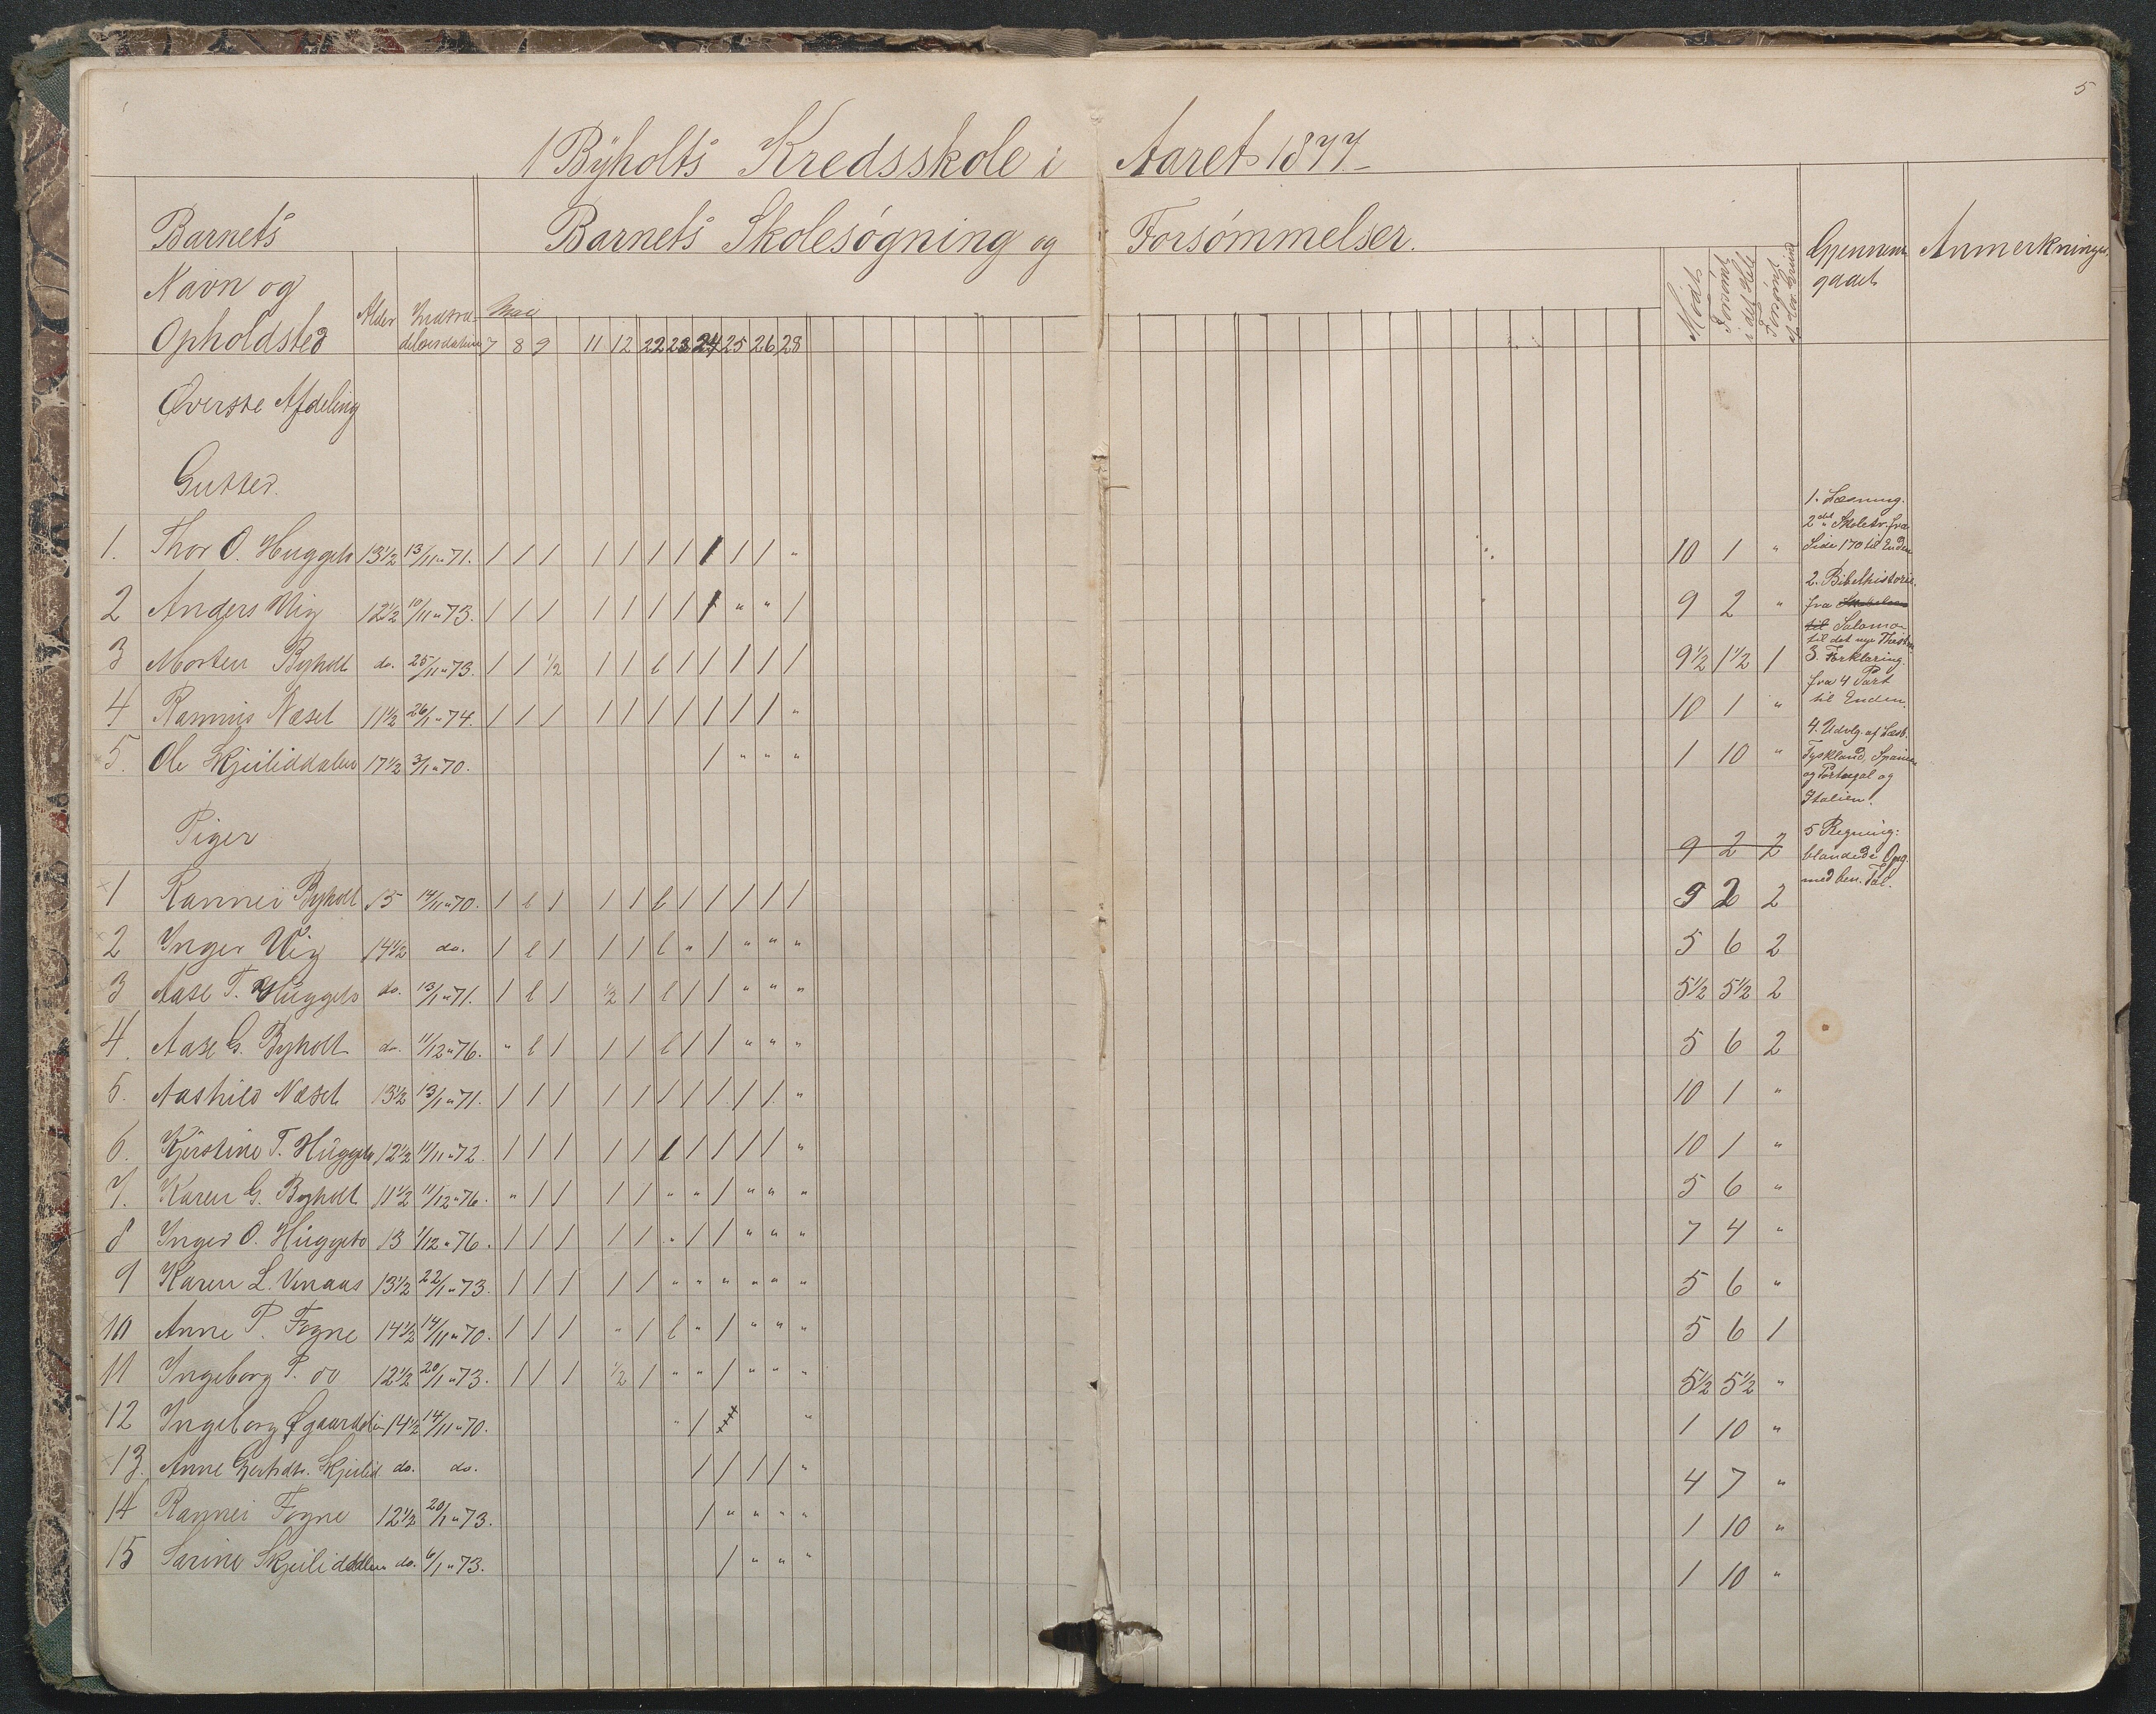 5
I Byholts Kredsskole i Aaret 1877.
Barnets Barnets Skolesøgning og Forsømmelser. Gjennem- Anmerkninger.
gaaet
Navn og Mødt Forsømt i det Hele Forsømt af lov. Grund
Opholdsted Alder Indtræ- Mai
delsesdatum 7 8 9 11 12 22 23 24 25 26 28
Øverste Afdeling
Gutter.
1. Thor O. Huggeto 13½ 13/11 " 71. / / / / / / / / / / " 10 1 "
2 Anders Vig 12½ 10/11 " 73. / / / / / / / / " " / 9 2 "
3 Morten Byholt do. 25/11 " 73. / / ½ / / l / / / / / 9½ 1½ 1
4 Rasmus Næset 11½ 26/1 " 74. / / / / / / / / / / " 10 1 "
5. Ole Skjeliddalen 17½ 3/1 " 70. / " " " 1 10 "
Piger 9 2 2
1 Rannei Byholt 15 14/11 " 70. / l / / / l / / / / / 9 2 2
2 Inger Vig 14½ do. / l / / / l " / " " " 5 6 2
3 Aase T. Huggeto do. 13/1 " 71. / l / ½ / l / / " " " 5½ 5½ 2
4. Aase G. Byholt do. 11/12 " 76. " l / / / l / / " " " 5 6 2
5. Aashild Næset 13½ 13/1 " 71. / / / / / / / / / / " 10 1 "
6. Kjerstine T. Huggeto 12½ 11/11 " 72. / / / / / / / / / / " 10 1 "
7. Karen G. Byholt 11½ 11/12 " 76. " / / / / " " / " " " 5 6 "
8 Inger O. Huggeto 13 1/12 " 76. / / / / / " / / " " " 7 4 "
9 Karen L. Vinaas 13½ 22/1 " 73. / / / / / " " " " " " 5 6 "
10 Anne P. Fogne 14½ 14/11 " 70. / / / " / l " / " " " 5 6 1
11 Ingeborg P. do 12½ 20/1 " 73. / / / ½ / " " / " " " 5½ 5½ "
12 Ingeborg Øgaarddalen 14½ 14/11 " 70. " / " 1 10 "
13. Anne Gertsdtr. Skjelid do. do. / / / / " 4 7 "
14 Rannei Fogne 12½ 20/1 " 73. / " " " " 1 10 "
15 Sarine Skjeliddalen do. 6/1 " 73. / " " " 1 10 "
1. Læsning.
2det Skoletr. fra
Side 170 til Enden
2. Bibelhistorie.
fra
til Salomon
til det nye Thest.
3. Forklaring.
fra 4 Part
til Enden.
4. Udvlg. af Læsb.
Tyskland, Spanien
og Portugal og
Italien.
5 Regning:
blandede Opg.
med ben. Tal.